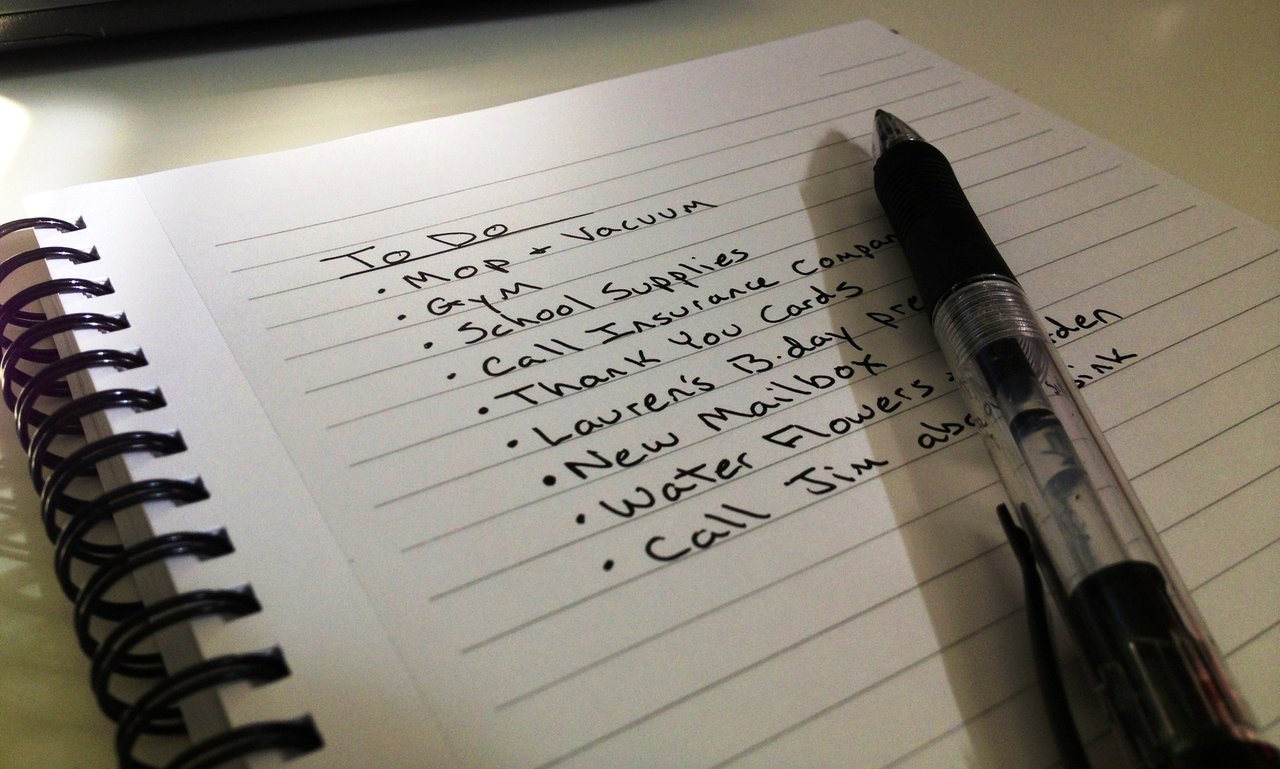 To Do
• Mop + Vacuum
• Gym
• School Supplies
• Call Insurance
• Thank You Cards
• Lauren's B.day
• New Mailbox
• Water Flowers
• Call Jim sink